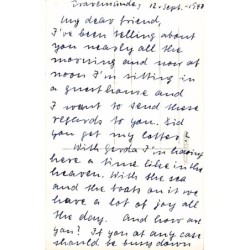 Travemünde, 12. Sept. 1948
My dear friend,
I've been telling about
you nearly all the
morning and now at
noon I'm sitting in
a guesthouse and
I want to send these
regards to you. Did
you get my letter?
With Gerda I'm having
here a time like in the
heaven. With the sea
and the boats on it we
have a lot of joy all
the day. And how are
you? If you at any case
should be busy down